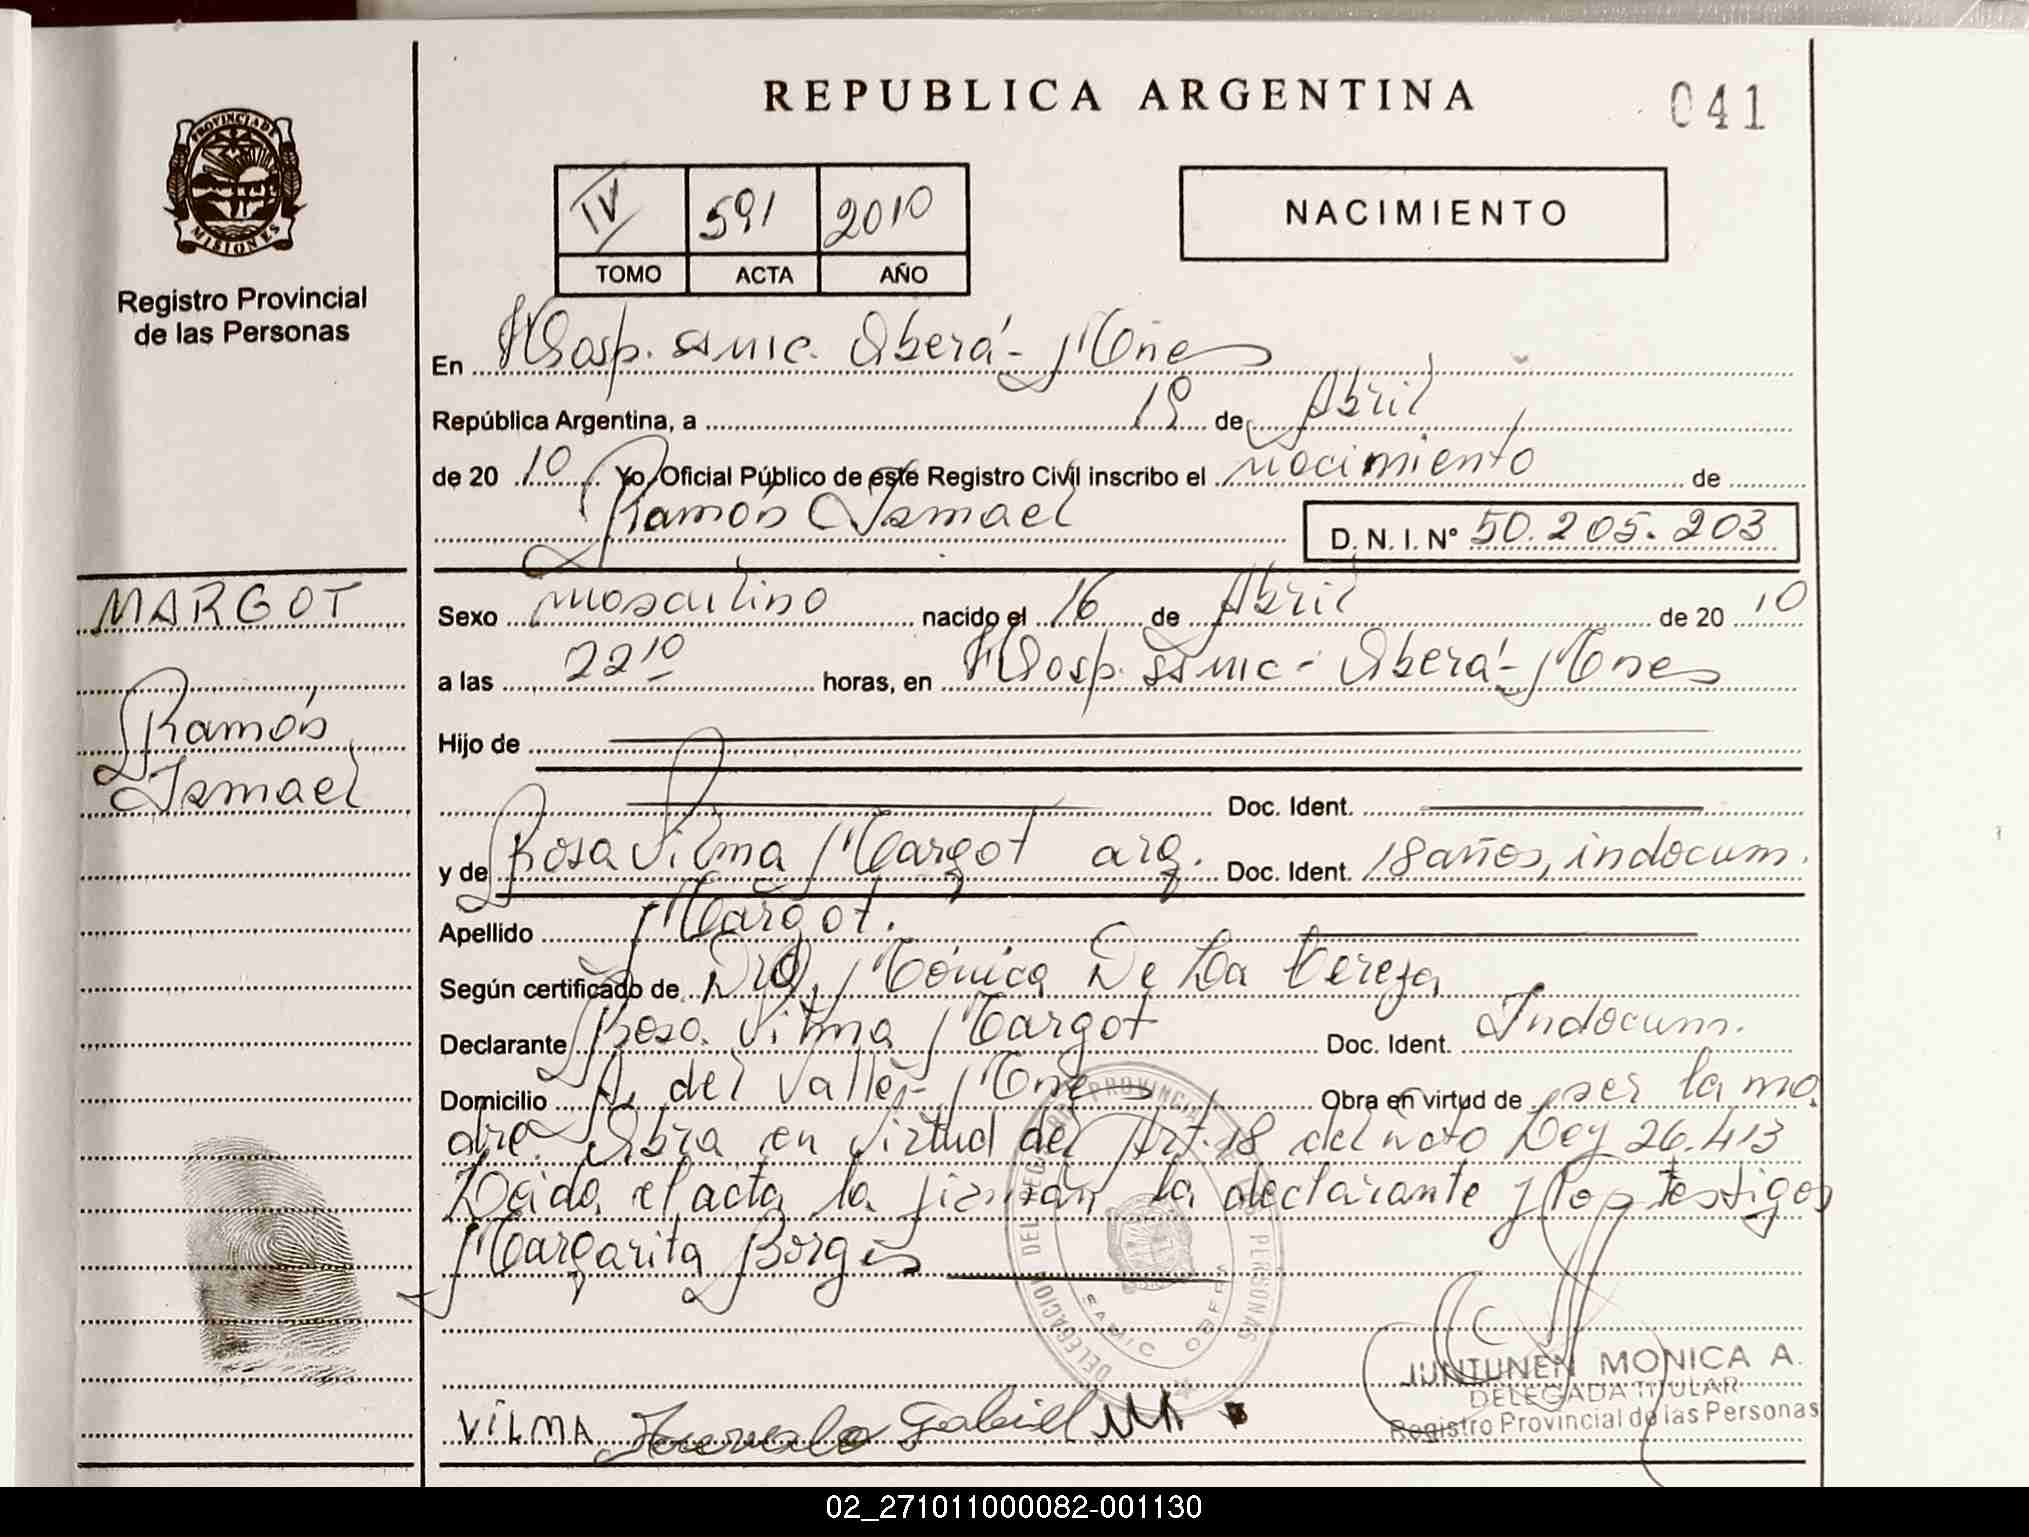 REPUBLICA ARGENTINA
041
PROVINCIA DE
MISIONES
Registro Provincial
de las Personas
IV 591 2010
TOMO ACTA AÑO
NACIMIENTO
En Hosp. Samic. Oberá - Mnes
República Argentina, a 19 de Abril
de 20 10 Yo, Oficial Público de este Registro Civil inscribo el nacimiento de
Ramón Ismael
D. N. I. N° 50.205.203
MARGOT
Ramón
Ismael
Sexo masculino nacido el 16 de Abril de 20 10
a las 22 10 horas, en Hosp. Samic - Oberá - Mnes
Hijo de
Doc. Ident.
y de Rosa Vilma Margot arg. Doc. Ident. 18 años, indocum.
Apellido Margot.
Según certificado de Dra. Mónica De La
Declarante Rosa Vilma Margot Doc. Ident. Indocum.
Domicilio A. del Valle - Mnes Obra en virtud de ser la ma
dre. Obra en virtud del Art. 18 del Ley 26.413
Leida el acta la firman la declarante y los testigos
Margarita Borges
DELEGACION DEL REGISTRO PROVINCIAL DE LAS PERSONAS
SAMIC OBERA
JUNTUNEN MONICA A.
DELEGADA TITULAR
Registro Provincial de las Personas
ViLMA Gabriel
02_271011000082-001130